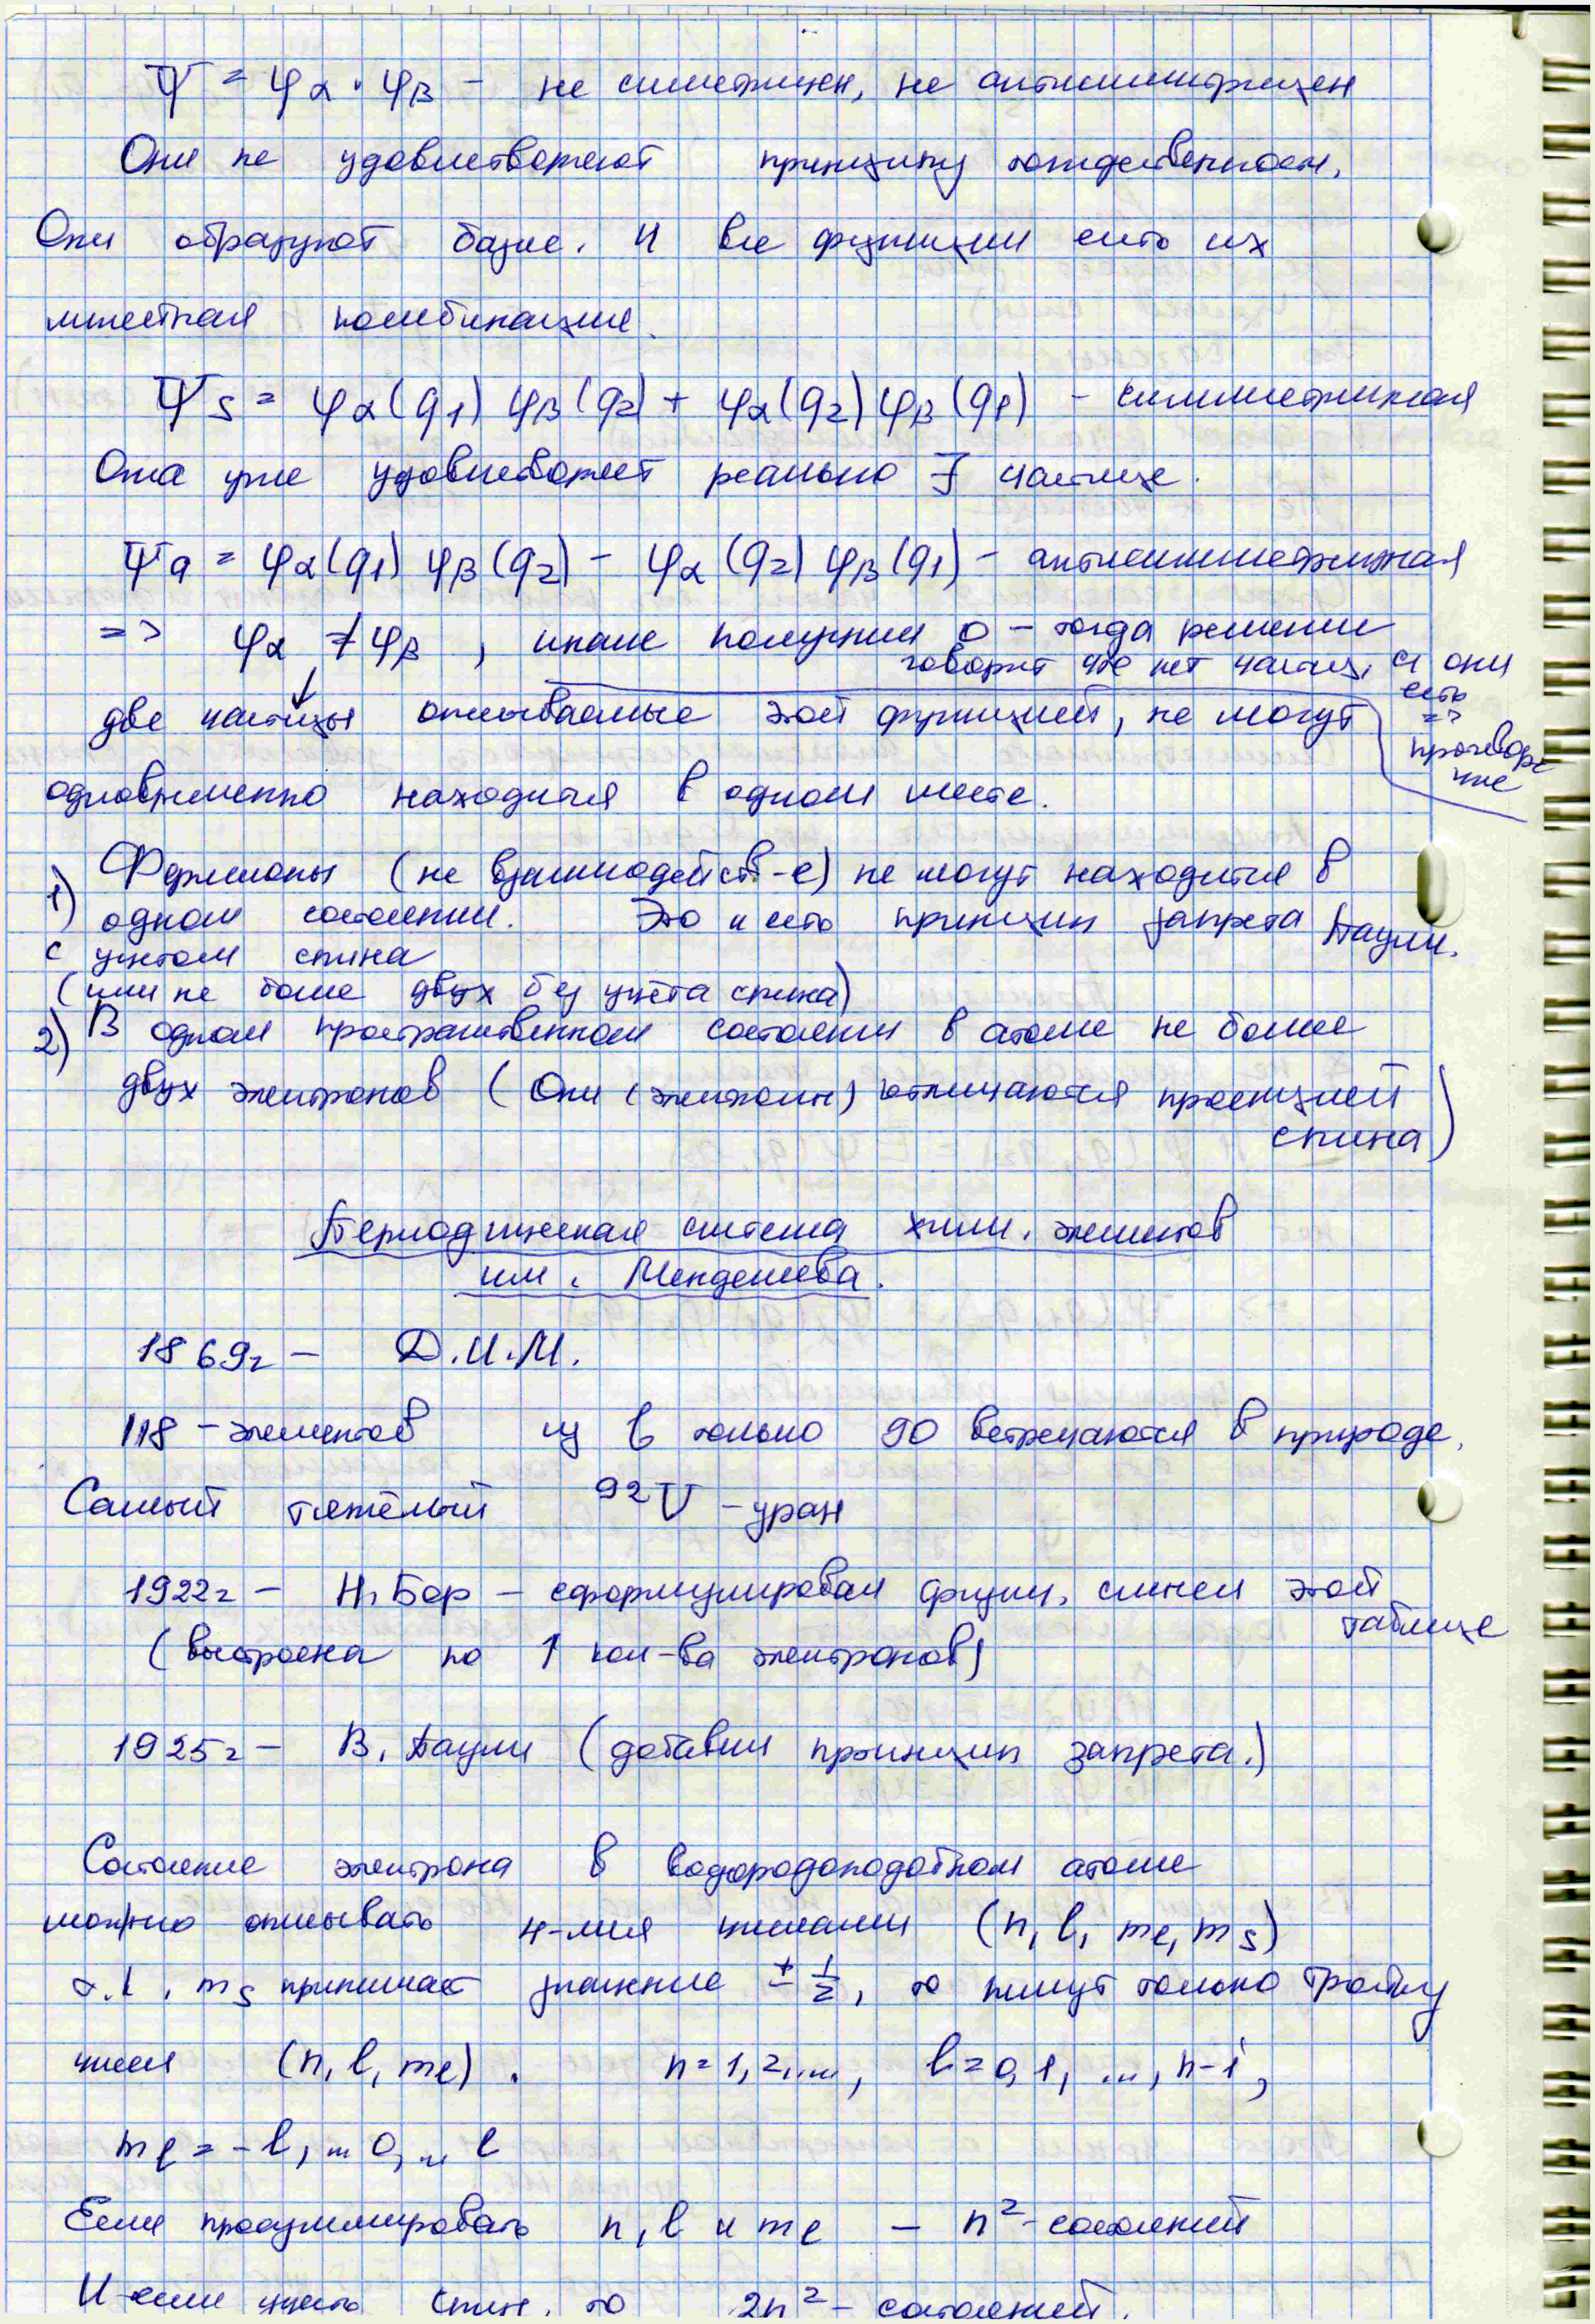 Ψ = φα · φβ – не симетричен, не антисимметричен
Они не удовлетворяют принципу тождественности.
Они образуют базис. И все функции есть их
линейная комбинация.
Ψs = φα(q1) φβ(q2) + φα(q2) φβ(q1) – симметричная
Она уже удовлетворяет реально ∃ частице.
Ψa = φα(q1) φβ(q2) – φα(q2) φβ(q1) – антисимметричная
=> φα ≠ φβ, иначе получим 0 – тогда решение
говорит что нет частиц, а они
есть
=>
противоре
чие
↓
две частицы описываемые этой функцией, не могут
одновременно находится в одном месте.
1) Фермионы (не взаимодейств-е) не могут находится в
одном состоянии. Это и есть принцип запрета Паули.
с учетом спина
(или не более двух без учёта спина)
2) В одном пространственном состоянии в атоме не более
двух электронов (Они (электроны) отличаются проекцией
спина)
Периодическая система хим. элементов
им. Менделеева.
1869г – Д.И.М.
118 – элементов из них только 90 встречаются в природе.
Самый тяжёлый 92U – уран
1922г – Н. Бор – сформулировал физич. смысл этой
таблице
(выстроена по ↑ кол-ва электронов)
1925г – В. Паули (добавил принцип запрета.)
Состояние электрона в водородоподобном атоме
можно описывать 4-мя числами (n, l, ml, ms)
т.к. ms принимает значение ± 1/2, то пишут только тройку
чисел (n, l, ml). n = 1, 2, ..., l = 0, 1, ..., n-1,
ml = -l, ... 0, ... l
Если просуммировать n, l и ml – n² – состояний
И если учесть спин, то 2n² – состояний.